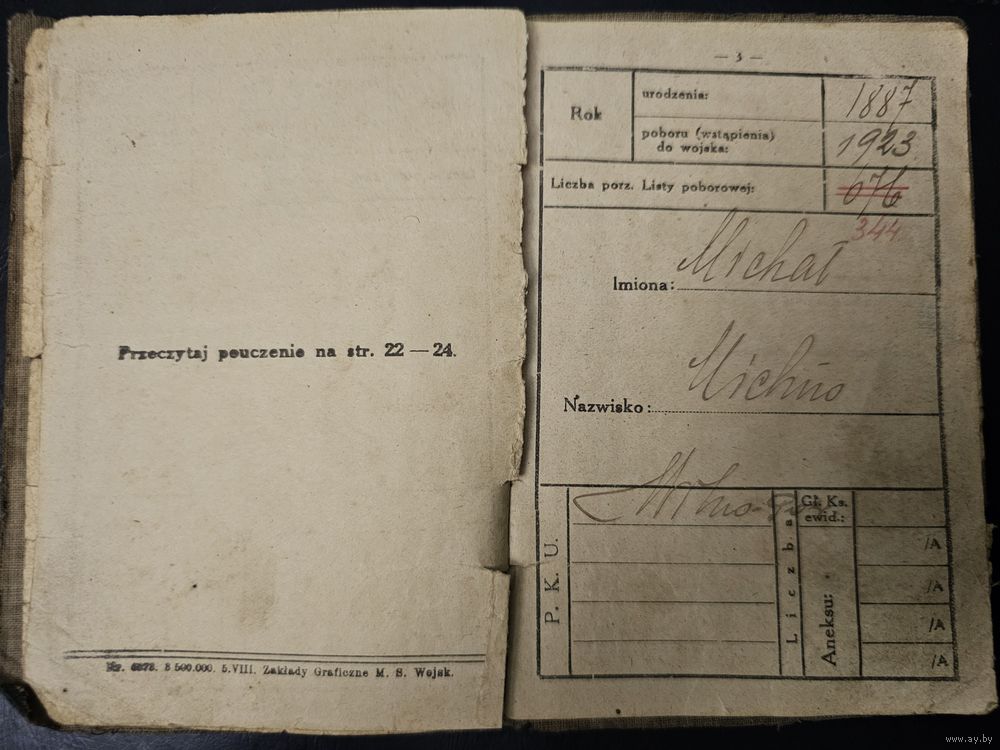 Przeczytaj pouczenie na str. 22 — 24.
8 500.000. 5.VIII. Zakłady Graficzne M. S. Wojsk.
— 3 —
Rok
urodzenia: 1887
poboru (wstąpienia)
do wojska: 1923
Liczba porz. Listy poborowej: 676
344
Imiona: Michał
Nazwisko: Michno
P. K. U.
Liczba
Gł. Ks.
ewid.:
Aneksu:
/A
/A
/A
/A
www.ay.by